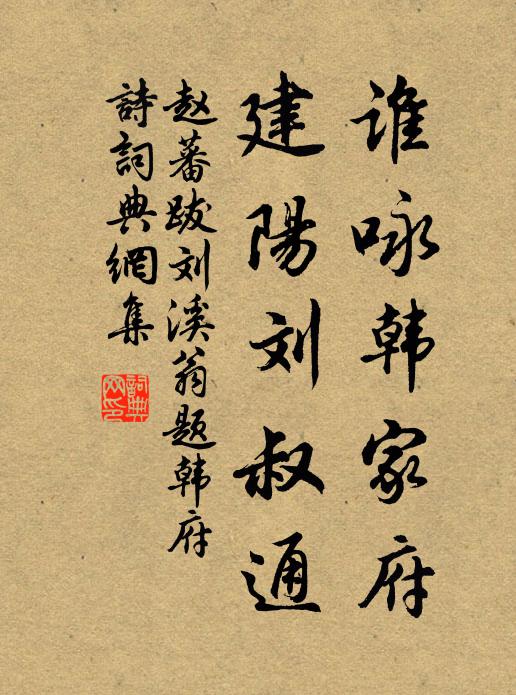 谁咏韩家府
建陽刘叔通
赵蕃跋刘溪翁题韩府
詩詞典網集
詞典網印